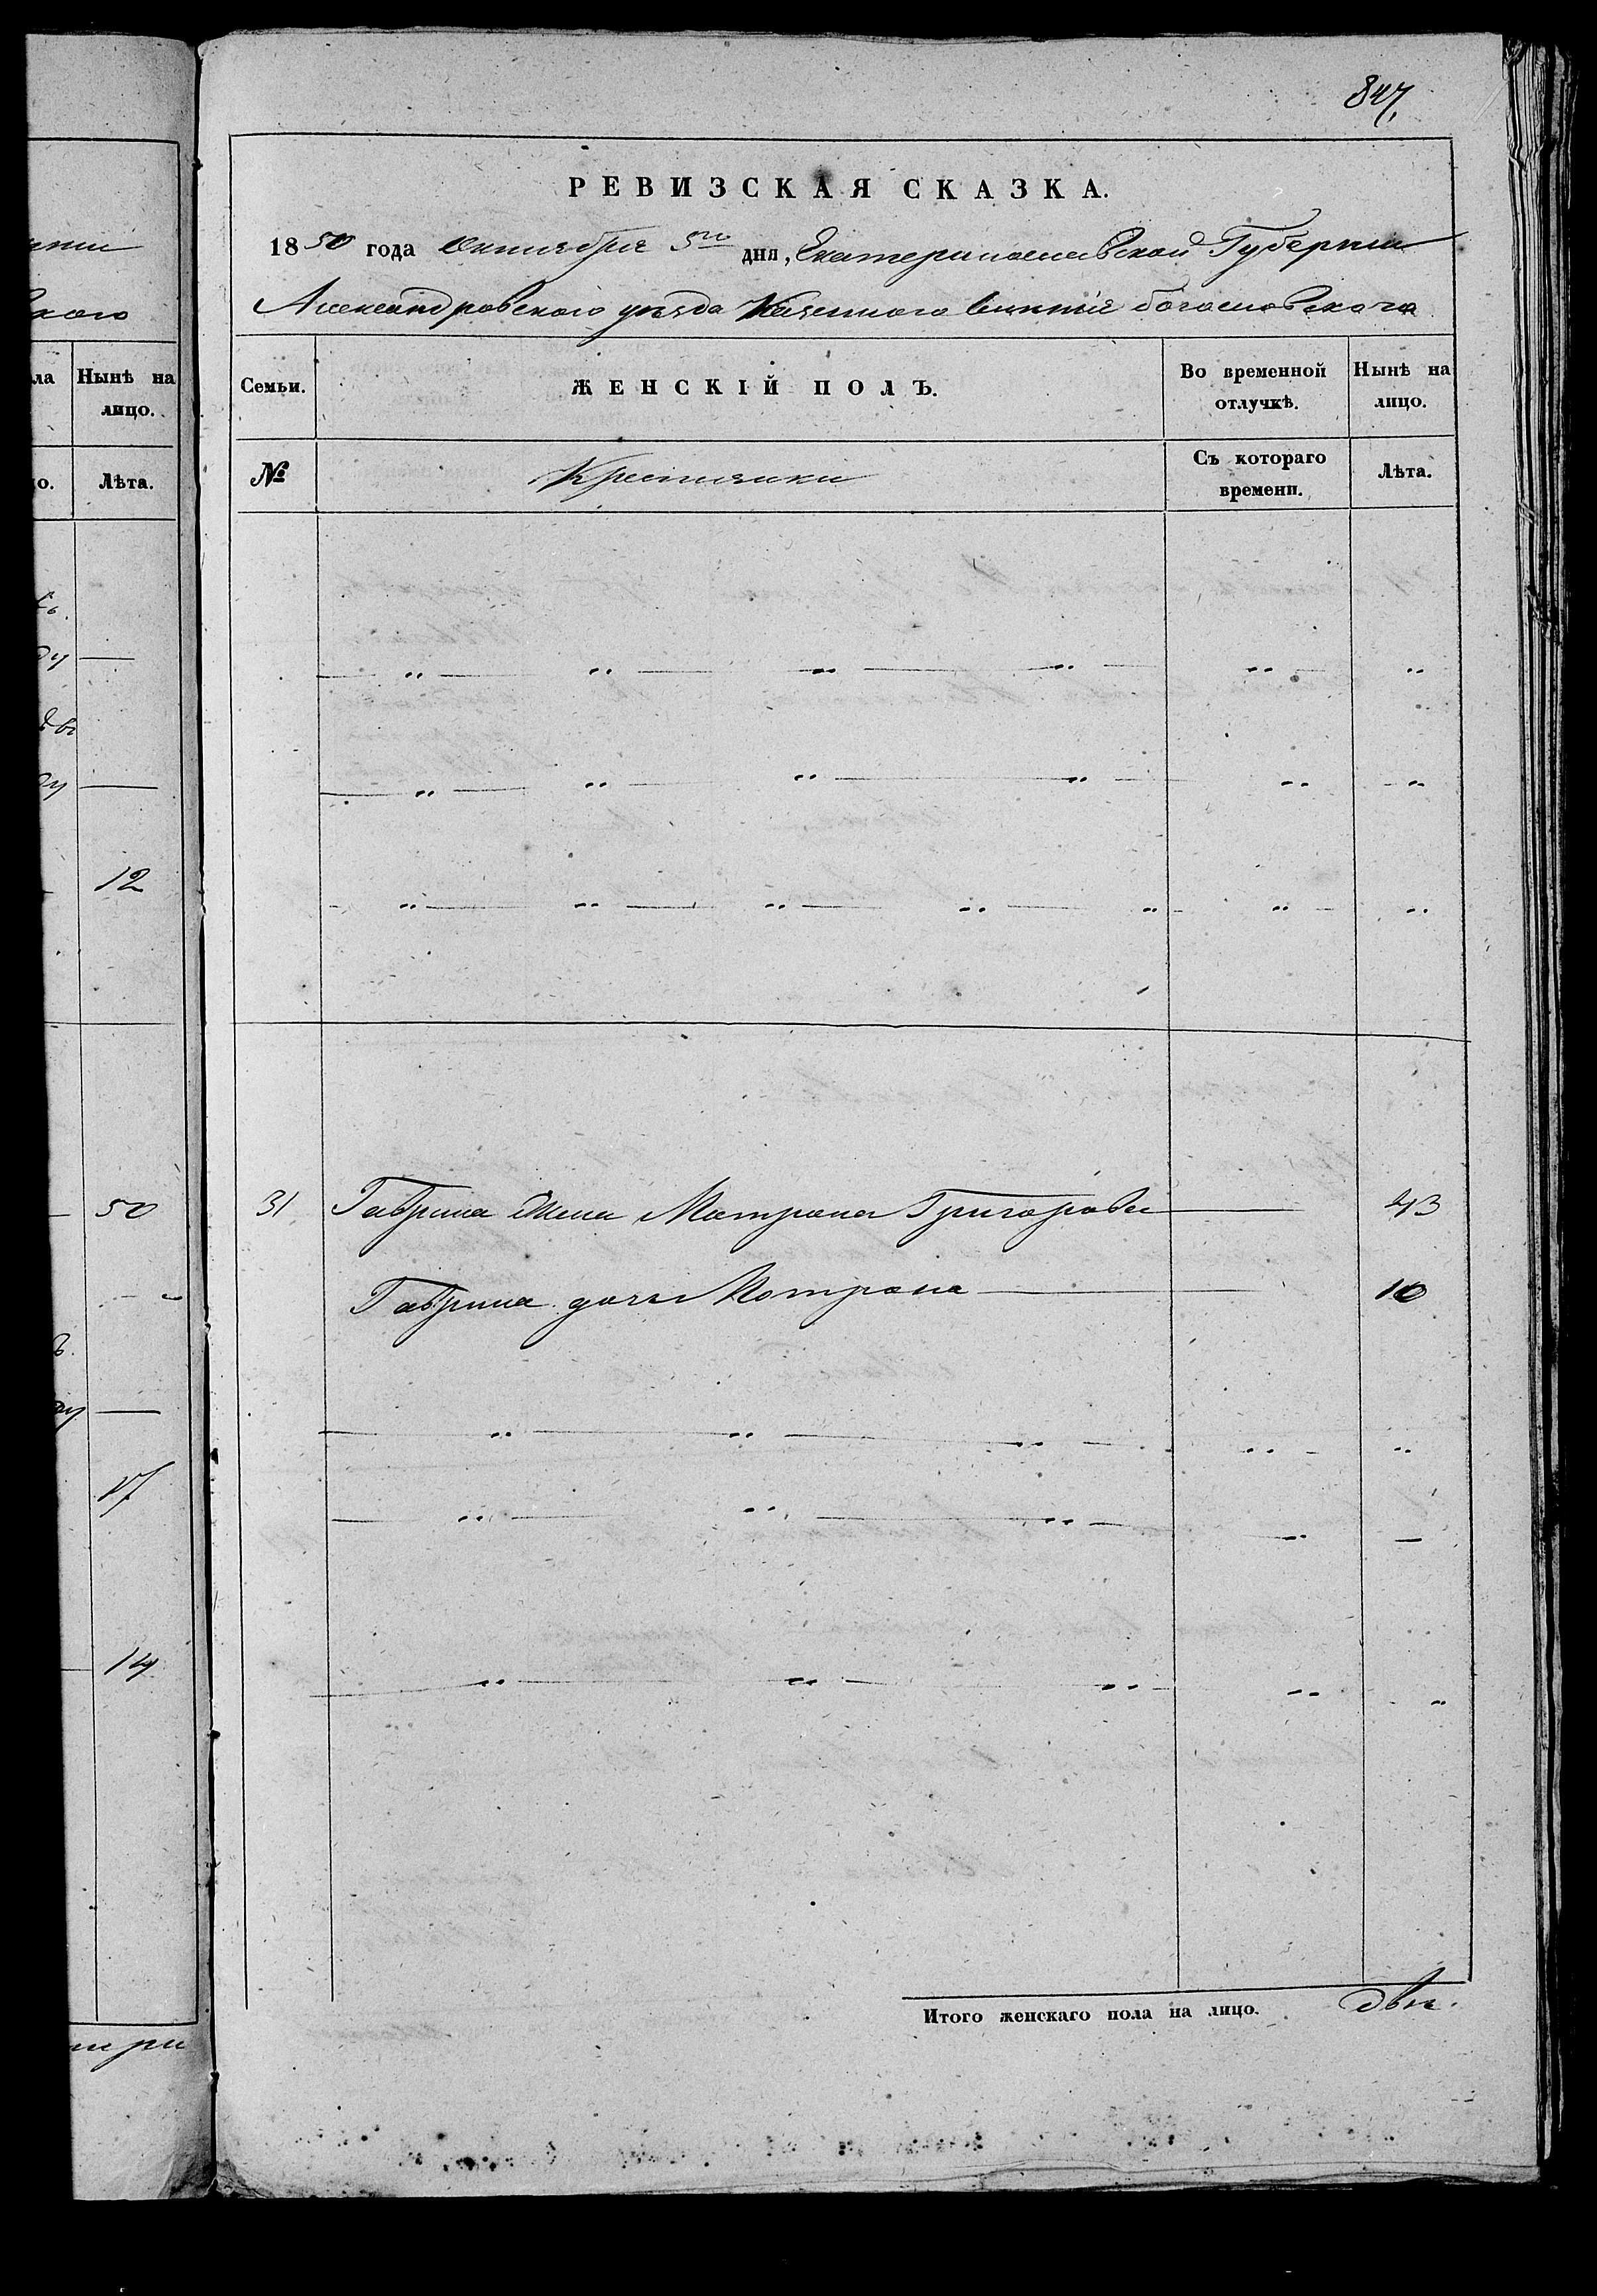 847,
РЕВИЗСКАЯ СКАЗКА.
1850 года Октября 5го дня, Екатеринославской Губернии
Александровского уезда Казенного Богословского
Семьи.
ЖЕНСКІЙ ПОЛЪ.
Во временной отлучкѣ.
Нынѣ на лицо.
№
Крестьянки
Съ котораго времени.
Лѣта.
31 Гаврила Жена Матрона Григорова 43
Гаврила дочь Мотрона 10
Итого женскаго пола на лицо. двѣ.
ла Нынѣ на лицо.
о. Лѣта.
ду
ду
12
50
17
14
три